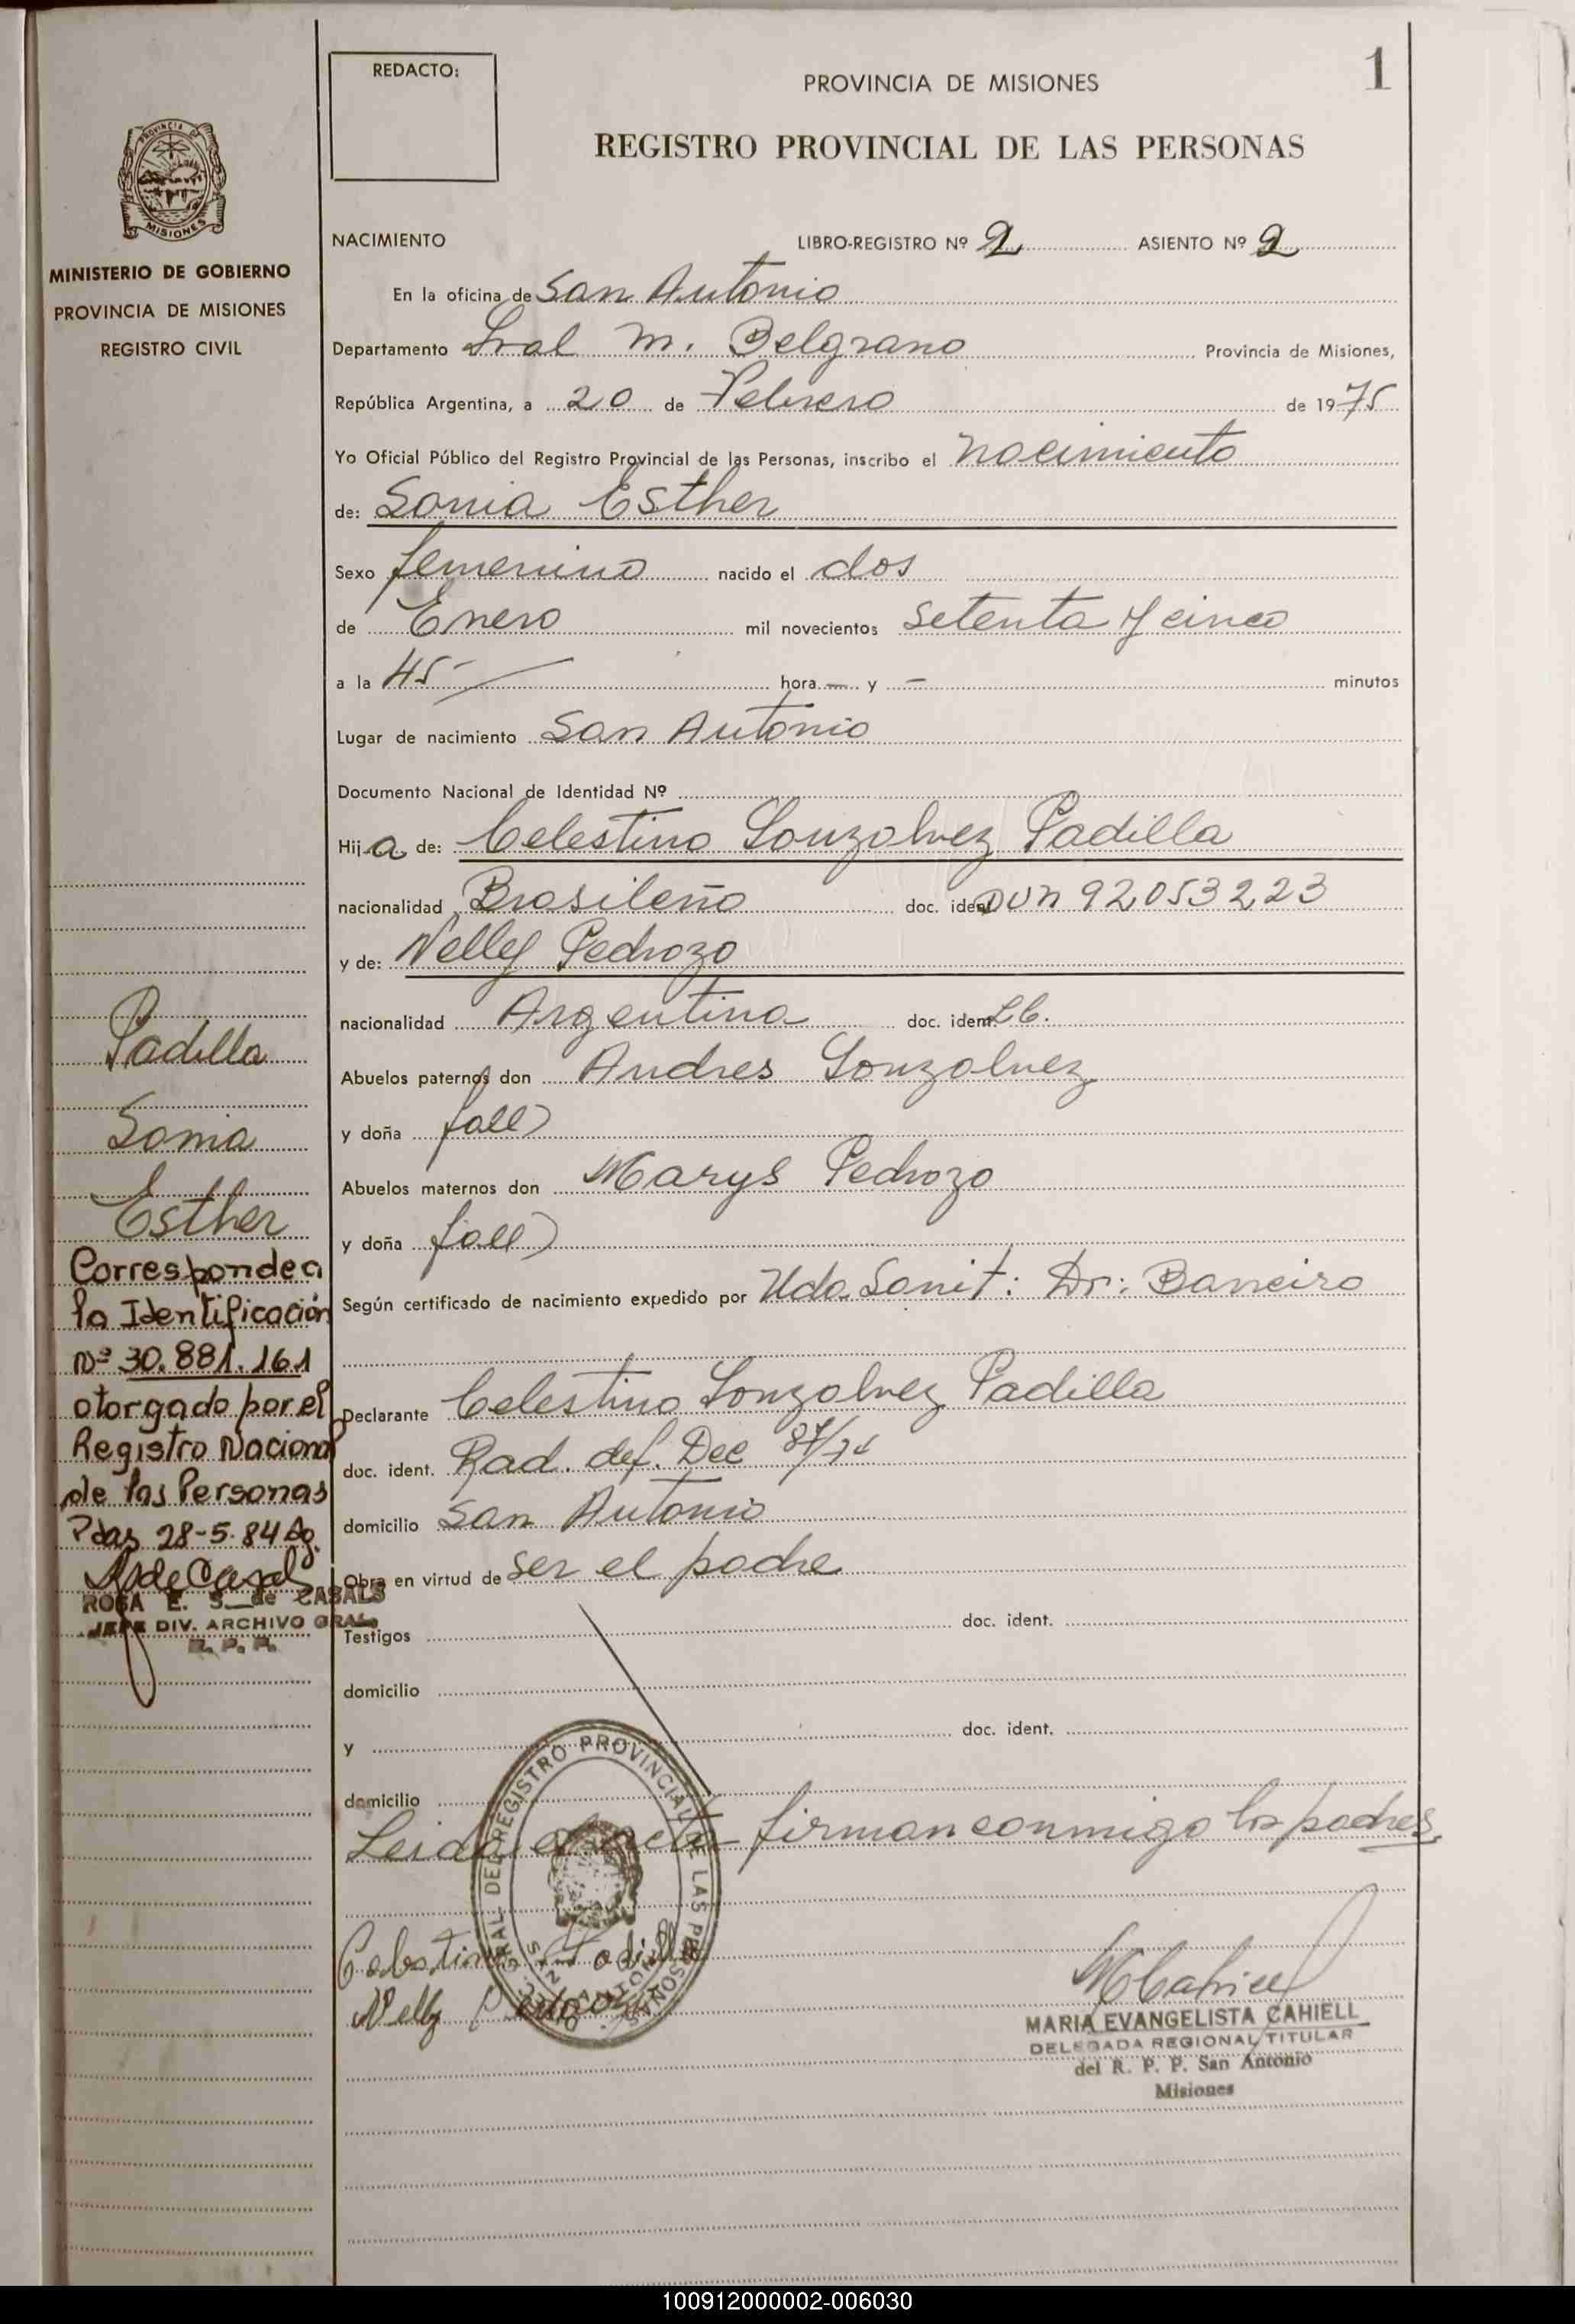 REDACTO:
PROVINCIA DE MISIONES
1
REGISTRO PROVINCIAL DE LAS PERSONAS
PROVINCIA
MISIONES
MINISTERIO DE GOBIERNO
PROVINCIA DE MISIONES
REGISTRO CIVIL
NACIMIENTO LIBRO-REGISTRO Nº 2 ASIENTO Nº 2
En la oficina de San Antonio
Departamento Gral M. Belgrano Provincia de Misiones,
República Argentina, a 20 de Febrero de 1975
Yo Oficial Público del Registro Provincial de las Personas, inscribo el nacimiento
de: Sonia Esther
Sexo femenino nacido el dos
de Enero mil novecientos setenta y cinco
a la 45- hora — y — minutos
Lugar de nacimiento San Antonio
Documento Nacional de Identidad Nº
Hija de: Celestino Gonzalvez Padilla
nacionalidad Brasileño doc. ident. 92053223
y de: Nelly Pedrozo
nacionalidad Argentina doc. ident.
Abuelos paternos don Andres Gonzalvez
y doña fall)
Abuelos maternos don Marys Pedrozo
y doña fall)
Según certificado de nacimiento expedido por Uda Sanit: Dr: Barreiro
Declarante Celestino Gonzalvez Padilla
doc. ident. Rad. def. Dec 87/74
domicilio San Antonio
Obra en virtud de ser el padre
Testigos doc. ident.
domicilio
y doc. ident.
domicilio
Leida el acta firman conmigo los padres,
Padilla
Sonia
Esther
Corresponde a
la Identificación
Nº 30.881.161
otorgado por el
Registro Nacional
de las Personas
Pdas 28-5-84
ROSA E. S. de CASALS
JEFE DIV. ARCHIVO GRAL.
R. P. P.
GRAL. DEL REGISTRO PROVINCIAL DE LAS PERSONAS
Celestino G Padilla
Nelly Pedrozo
MCahiell
MARIA EVANGELISTA CAHIELL
DELEGADA REGIONAL TITULAR
del R. P. P. San Antonio
Misiones
100912000002-006030